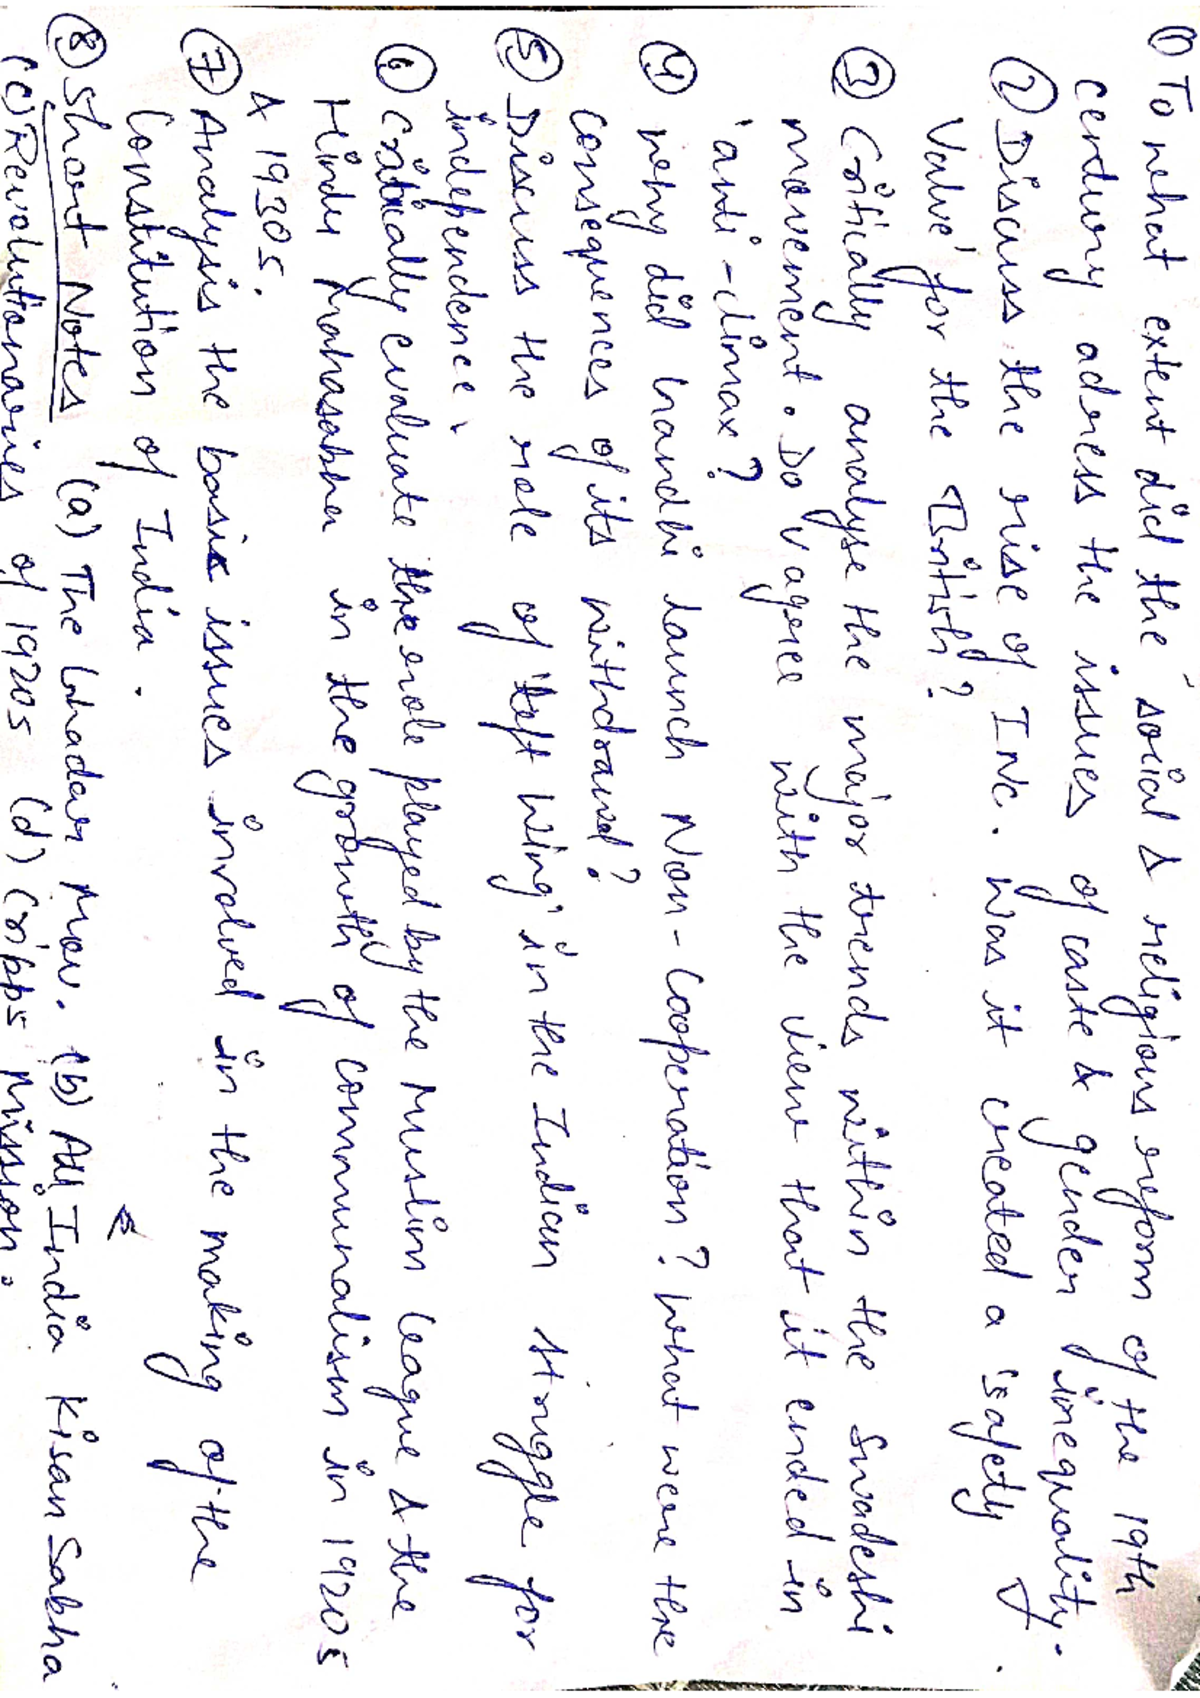 ① To what extent did the social & religious reform of the 19th
century adress the issues of caste & gender inequality.
② Discuss the rise of INC. Was it created a 'safety
Valve' for the British?
③ Critically analyse the major trends within the Swadeshi
movement. Do U agree with the view that it ended in
'anti-climax?
④ why did Gandhi launch Non-Cooperation? What were the
consequences of its withdrawal?
⑤ Discuss the role of 'left wing' in the Indian struggle for
independence.
⑥ Critically evaluate the role played by the Muslim league & the
Hindu Mahasabha in the growth of communalism in 1920s
& 1930s.
⑦ Analysis the basic issues involved in the making of the
Constitution of India.
⑧ Short Notes (a) The Ghadar Mov. (b) All India Kisan Sabha
(c) Revolutionaries of 1920s (d) Cripps Mission.